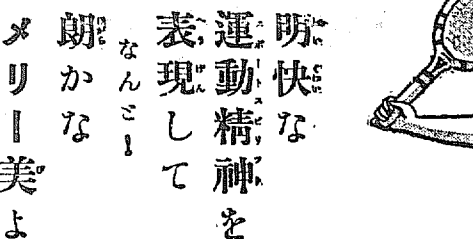 明快な
運動精神を
表現して
なんと！
朗かな
メリー美よ